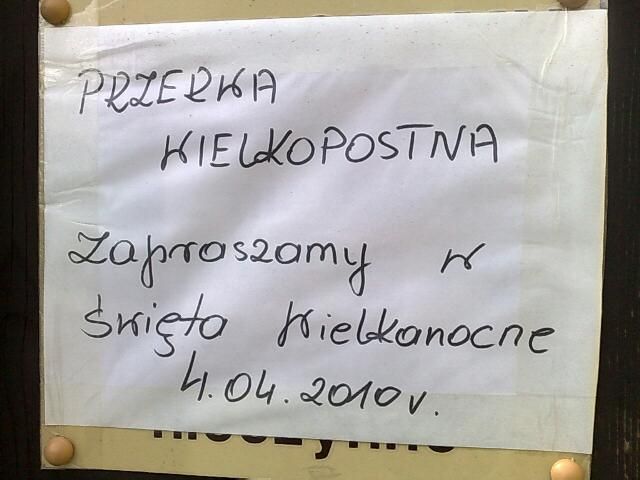 PRZERWA
WIELKOPOSTNA
Zapraszamy w
Święta Wielkanocne
4.04.2010r.
nieczynne